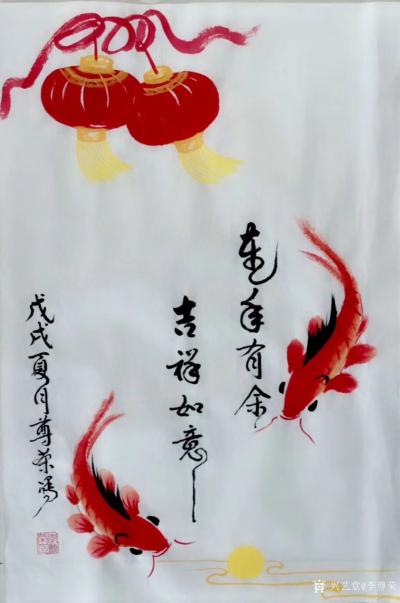 连年有余
吉祥如意
戊戌夏月尊荣写
兴艺堂@李尊荣